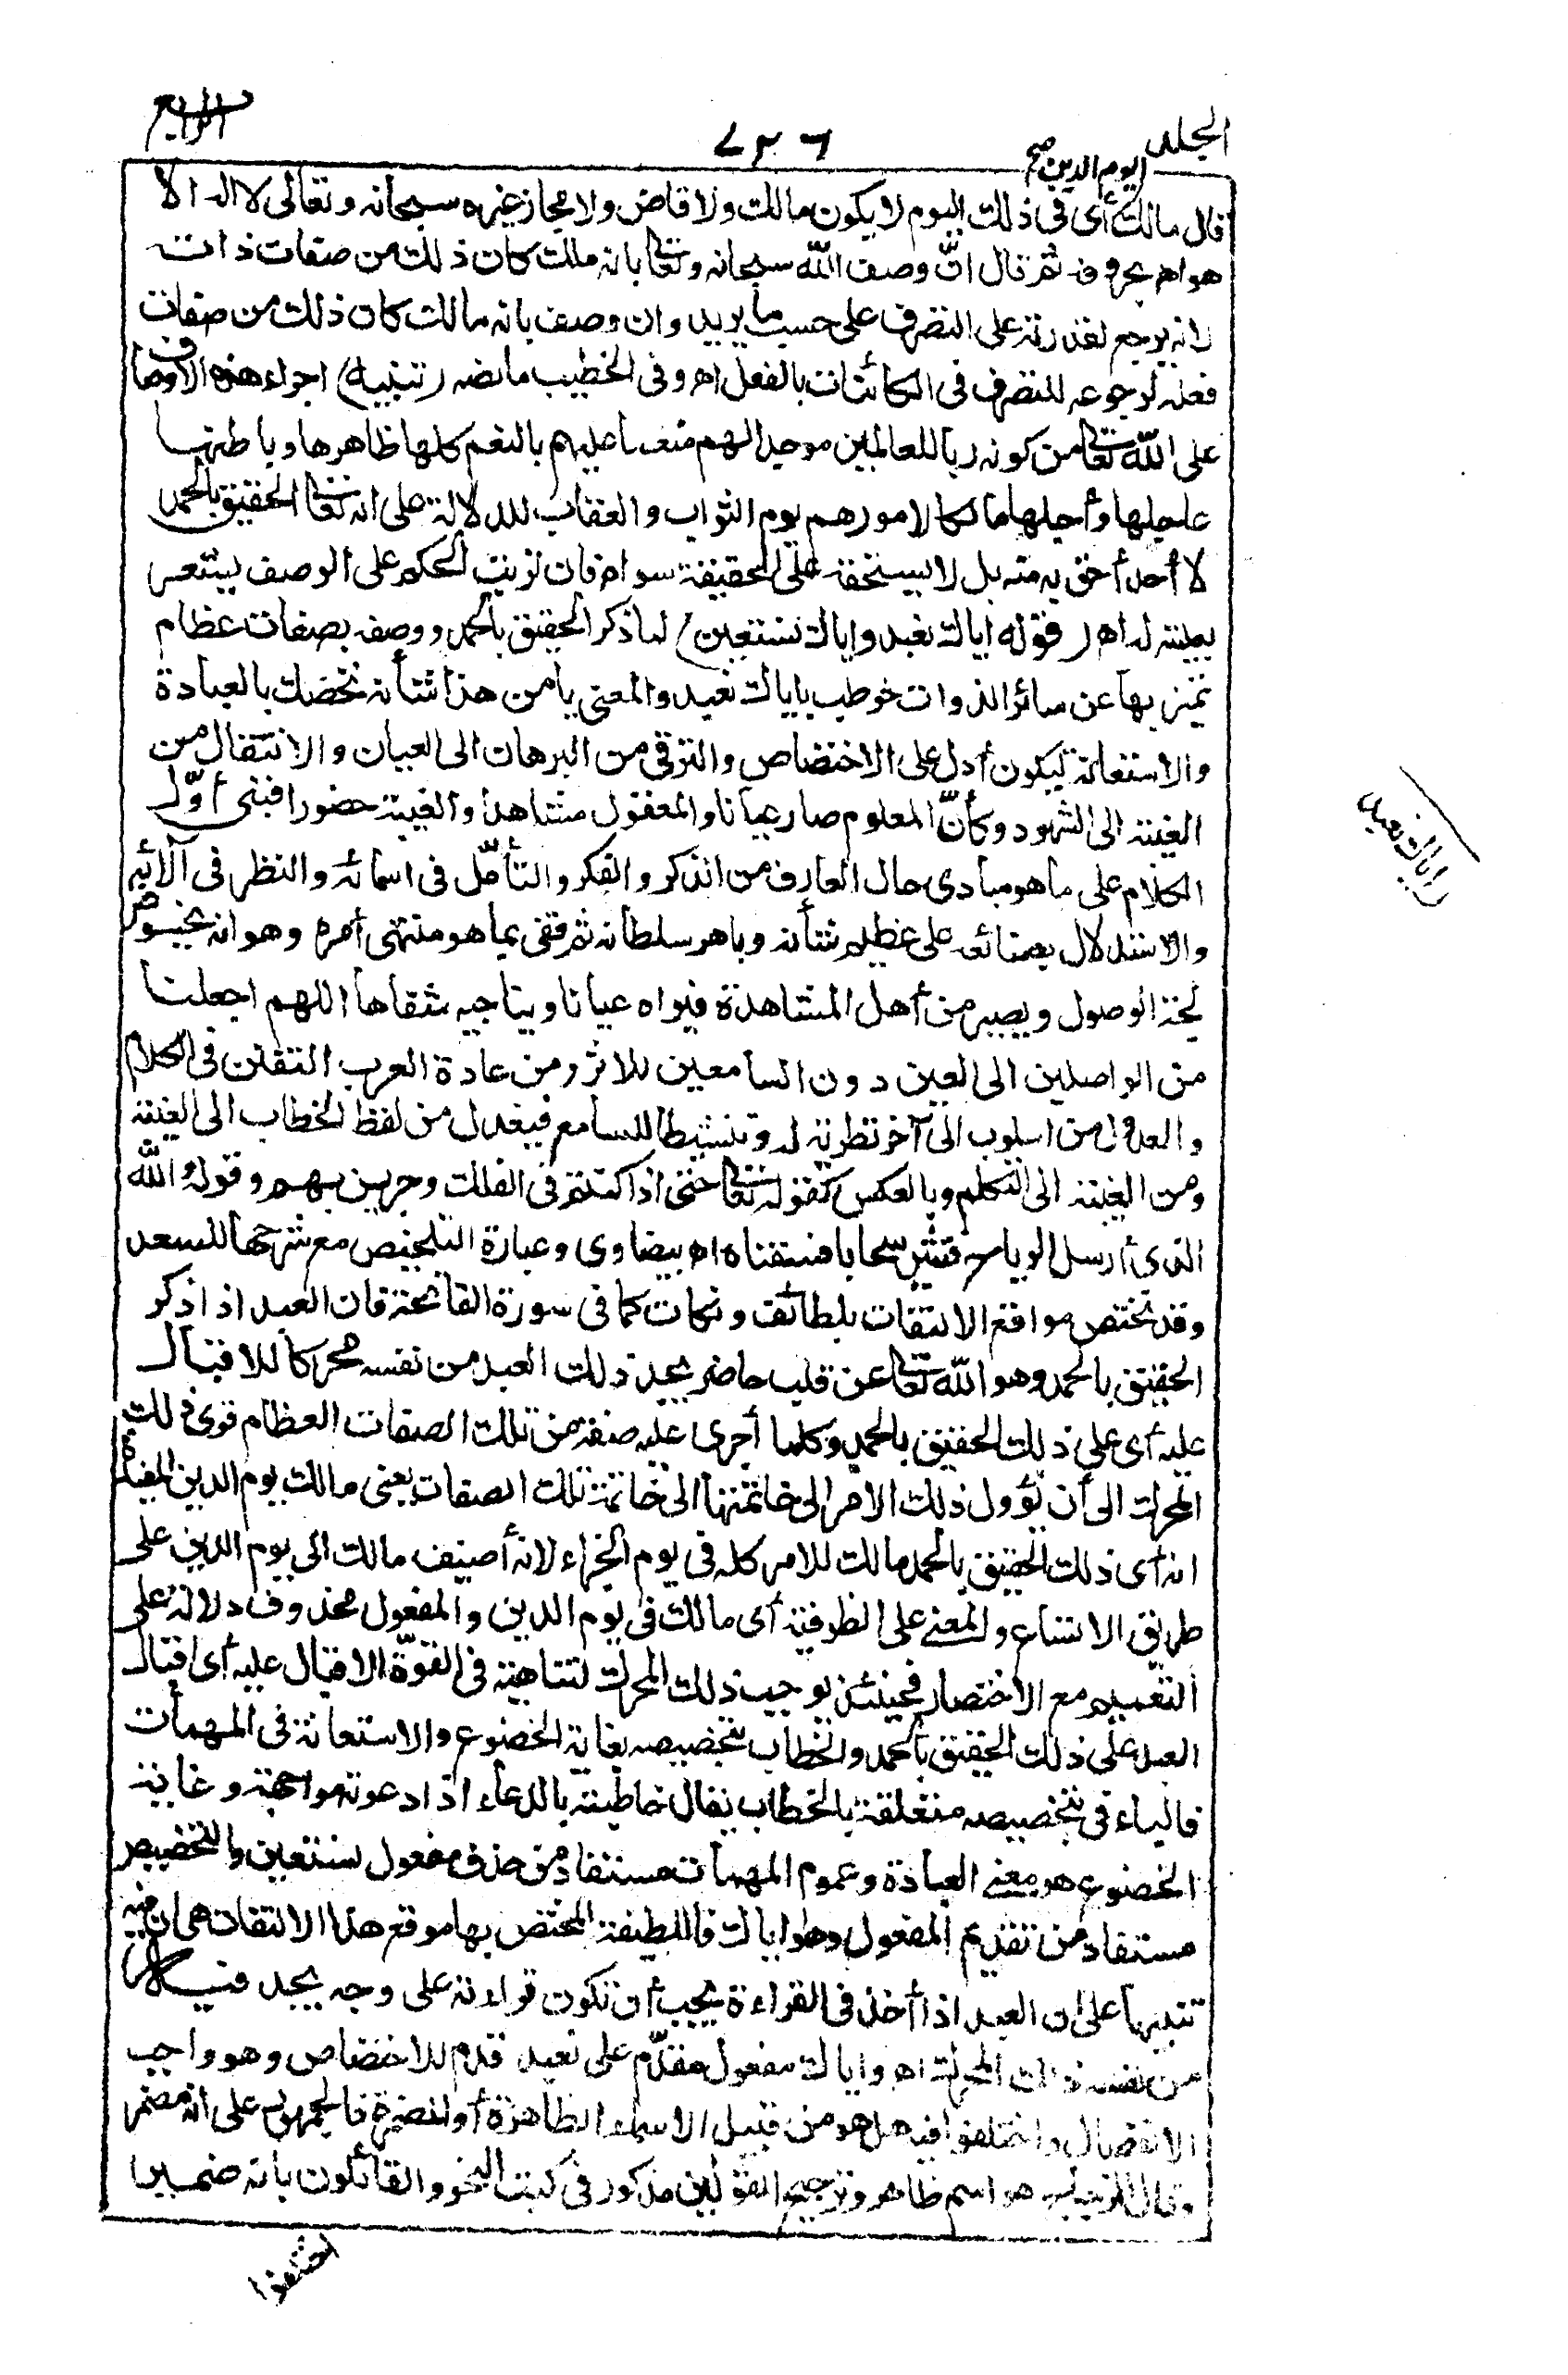 المجلد
٧٣٦
الرابع
يوم الدين صح
قال مالك أى فى ذلك اليوم لا يكون مالك ولا قاض ولا مجاز غيره سبحانه وتعالى لا اله الا
هو اهم بحروفه ثم قال انّ وصف الله سبحانه وتعالى بانه ملك كان ذلك من صفات ذات
لانه يرجع لقدرته على التصرف على حسب ما يريد وان وصف بانه مالك كان ذلك من صفات
فعله لرجوعه للتصرف فى الكائنات بالفعل اه وفى الخطيب ما نصه (تنبيه) اجراء هذه الاوصاف
على الله تعالى من كونه ربا للعالمين موجدا لهم منعما عليهم بالنعم كلها ظاهرها وباطنها
عاجلها وآجلها مالكا لامورهم يوم الثواب والعقاب للدلالة على انه تعالى الحقيق بالحمد
لا أحد أحق به منه بل لا يستحقه على الحقيقة سواه فان ترتيب الحكم على الوصف يشعر
بعليته له اه (قوله اياك نعبد واياك نستعين) لما ذكر الحقيق بالحمد ووصفه بصفات عظام
تميز بها عن سائر الذوات خوطب باياك نعبد والمعنى يا من هذا شأنه نخصك بالعبادة
والاستعانة ليكون أدل على الاختصاص والترقى من البرهان الى العيان والانتقال من
الغيبة الى الشهود وكأنّ المعلوم صار عيانا والمعقول مشاهدا والغيبة حضورا فبنى أوّل
الكلام على ما هو مبادى حال العارف من الذكر والفكر والتأمّل فى اسمائه والنظر فى آلائه
والاستدلال بصنائعه على عظيم شأنه وباهر سلطانه ثم قفى بما هو منتهى أمره وهو انه يخوض
لجة الوصول ويصير من أهل المشاهدة فيراه عيانا ويناجيه شفاها اللهم اجعلنا
من الواصلين الى العين دون السامعين للاثر ومن عادة العرب التفنن فى الكلام
والعدول من اسلوب الى آخر تطرية له وتنشيطا للسامع فيعدل من لفظ الخطاب الى الغيبة
ومن الغيبة الى التكلم وبالعكس كقوله تعالى حتى اذا كنتم فى الفلك وجرين بهم وقوله والله
الذى أرسل الرياح فتثير سحابا فسقناه اه بيضاوى وعبارة التلخيص مع شرحها للسعد
وقد تختص مواقع الالتفات بلطائف ونكات كما فى سورة الفاتحة فان العبد اذا ذكر
الحقيق بالحمد وهو الله تعالى عن قلب حاضر يجد ذلك العبد من نفسه محركا للاقبال
عليه أى على ذلك الحقيق بالحمد وكلما أجرى عليه صفة من تلك الصفات العظام قوى ذلك
المحرك الى أن يؤول ذلك الامر الى خاتمتها الى خاتمة تلك الصفات يعنى مالك يوم الدين المفيدة
انه أى ذلك الحقيق بالحمد مالك للامر كله فى يوم الجزاء لانه أضيف مالك الى يوم الدين على
طريق الاتساع والمعنى على الظرفية أى مالك فى يوم الدين والمفعول محذوف دلالة على
التعميم مع الاختصار فحينئذ يوجب ذلك المحرك لتناهيه فى القوّة الاقبال عليه أى اقبال
العبد على ذلك الحقيق بالحمد والخطاب بتخصيصه بغاية الخضوع والاستعانة فى المهمات
فالباء فى بتخصيصه متعلقة بالخطاب يقال خاطبته بالدعاء اذا دعوته مواجهة وغاية
الخضوع هو معنى العبادة وعموم المهمات مستفاد من حذف مفعول نستعين والتخصيص
مستفاد من تقديم المفعول وهو اياك فاللطيفة المختص بها موقع هذا الالتفات هى ان فيه
تنبيها على ان العبد اذا أخذ فى القراءة يجب أن تكون قراءته على وجه يجد فيه
من نفسه ذلك المحرك اه واياك مفعول مقدّم على نعبد قدم للاختصاص وهو واجب
الانفصال واختلفوا فيه هل هو من قبيل الاسماء الظاهرة أو المضمرة فالجمهور على انه مضمر
وقال الزجاج هو اسم ظاهر وترجيح القولين مذكور فى كتب النحو والقائلون بانه ضمير
(اياك نعبد
اختلفوا